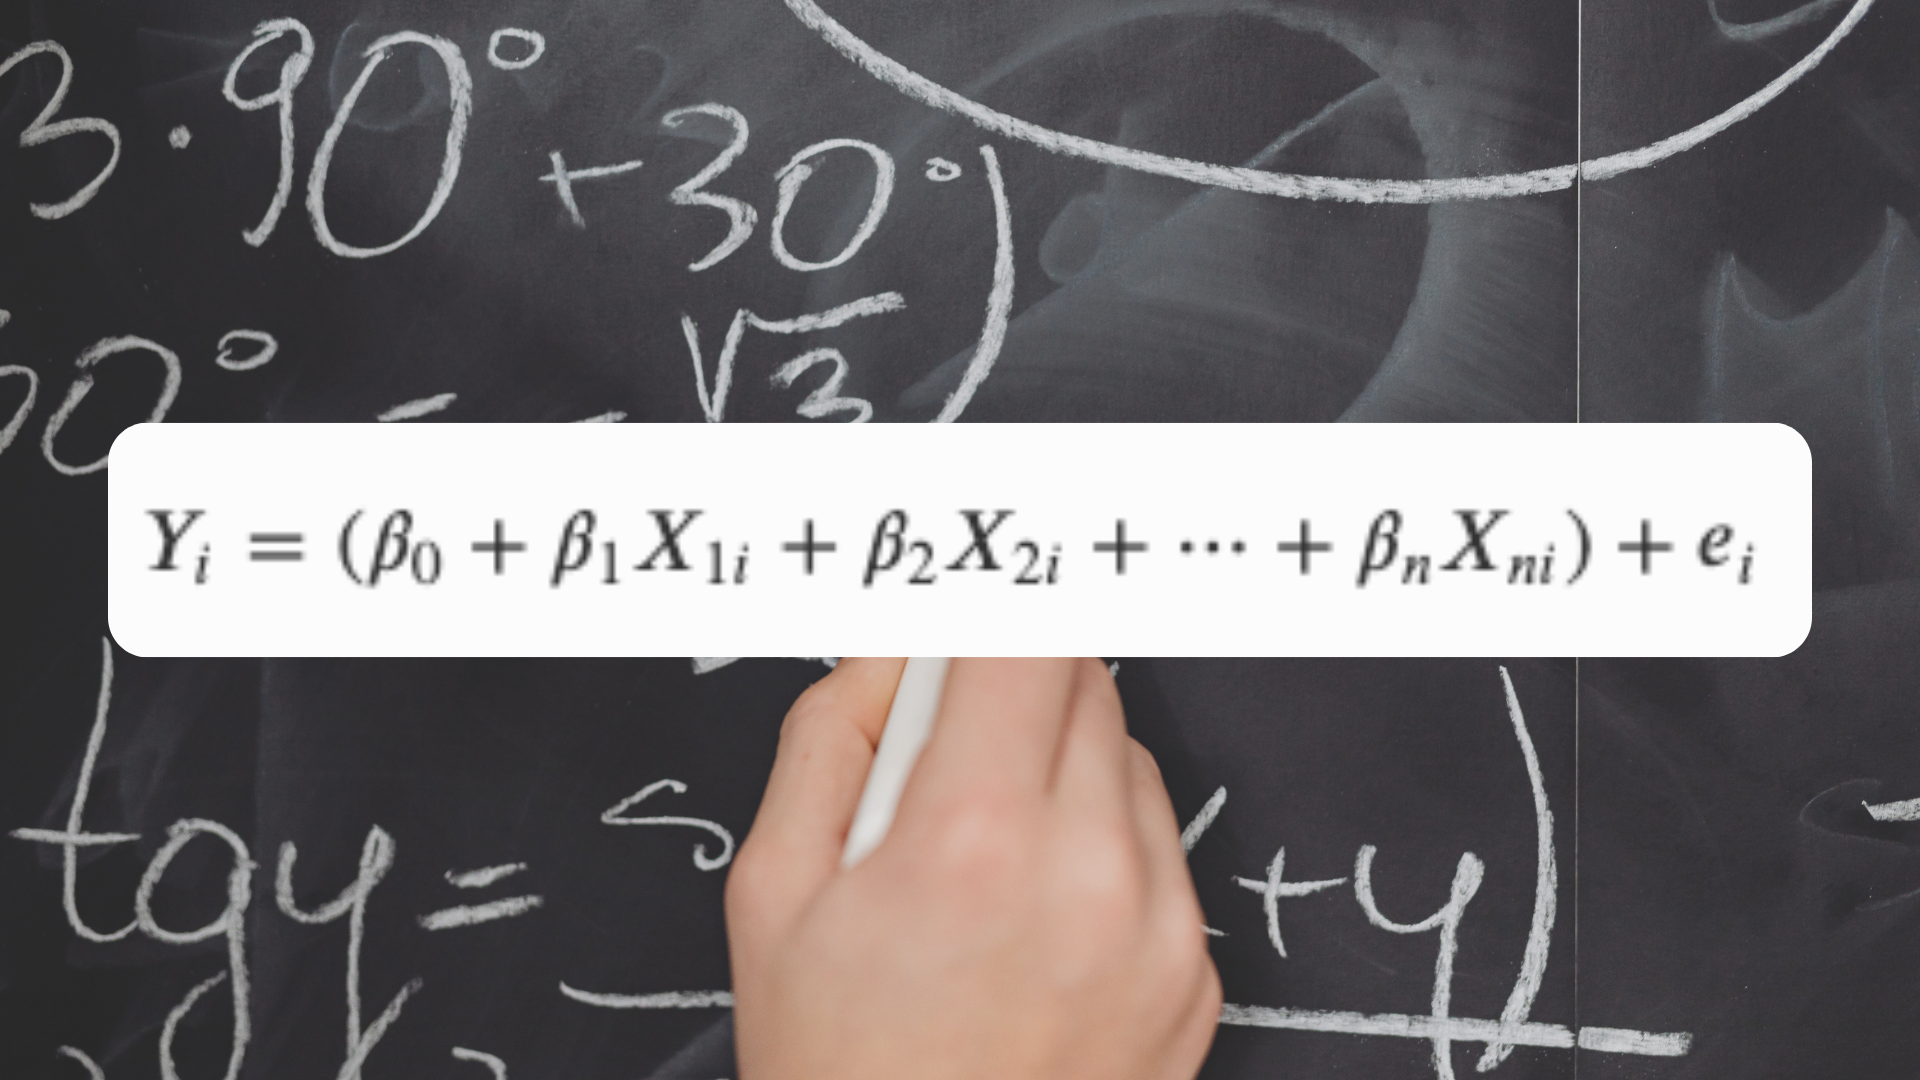 3 · 90° + 30° )
0° = - √3
Y_i = (β_0 + β_1X_{1i} + β_2X_{2i} + ··· + β_nX_{ni}) + e_i
tgy = s + y )